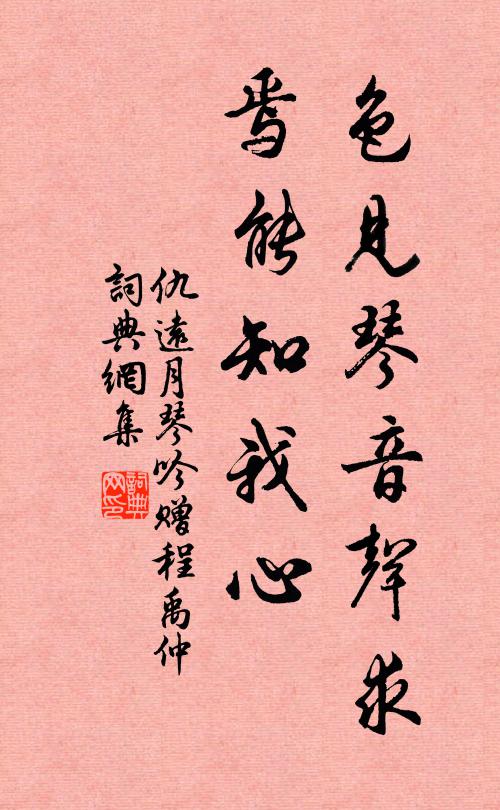 色見琴音聲求
焉能知我心
仇遠月琴吟贈程禹仲
詞典網集
詞典
网印